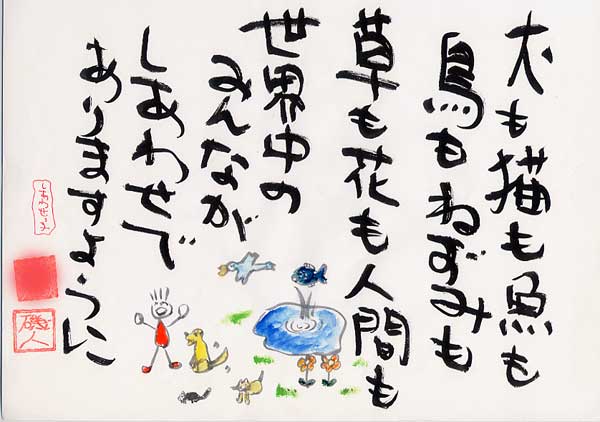 犬も猫も魚も
鳥もねずみも
草も花も人間も
世界中の
みんなが
しあわせで
ありますように